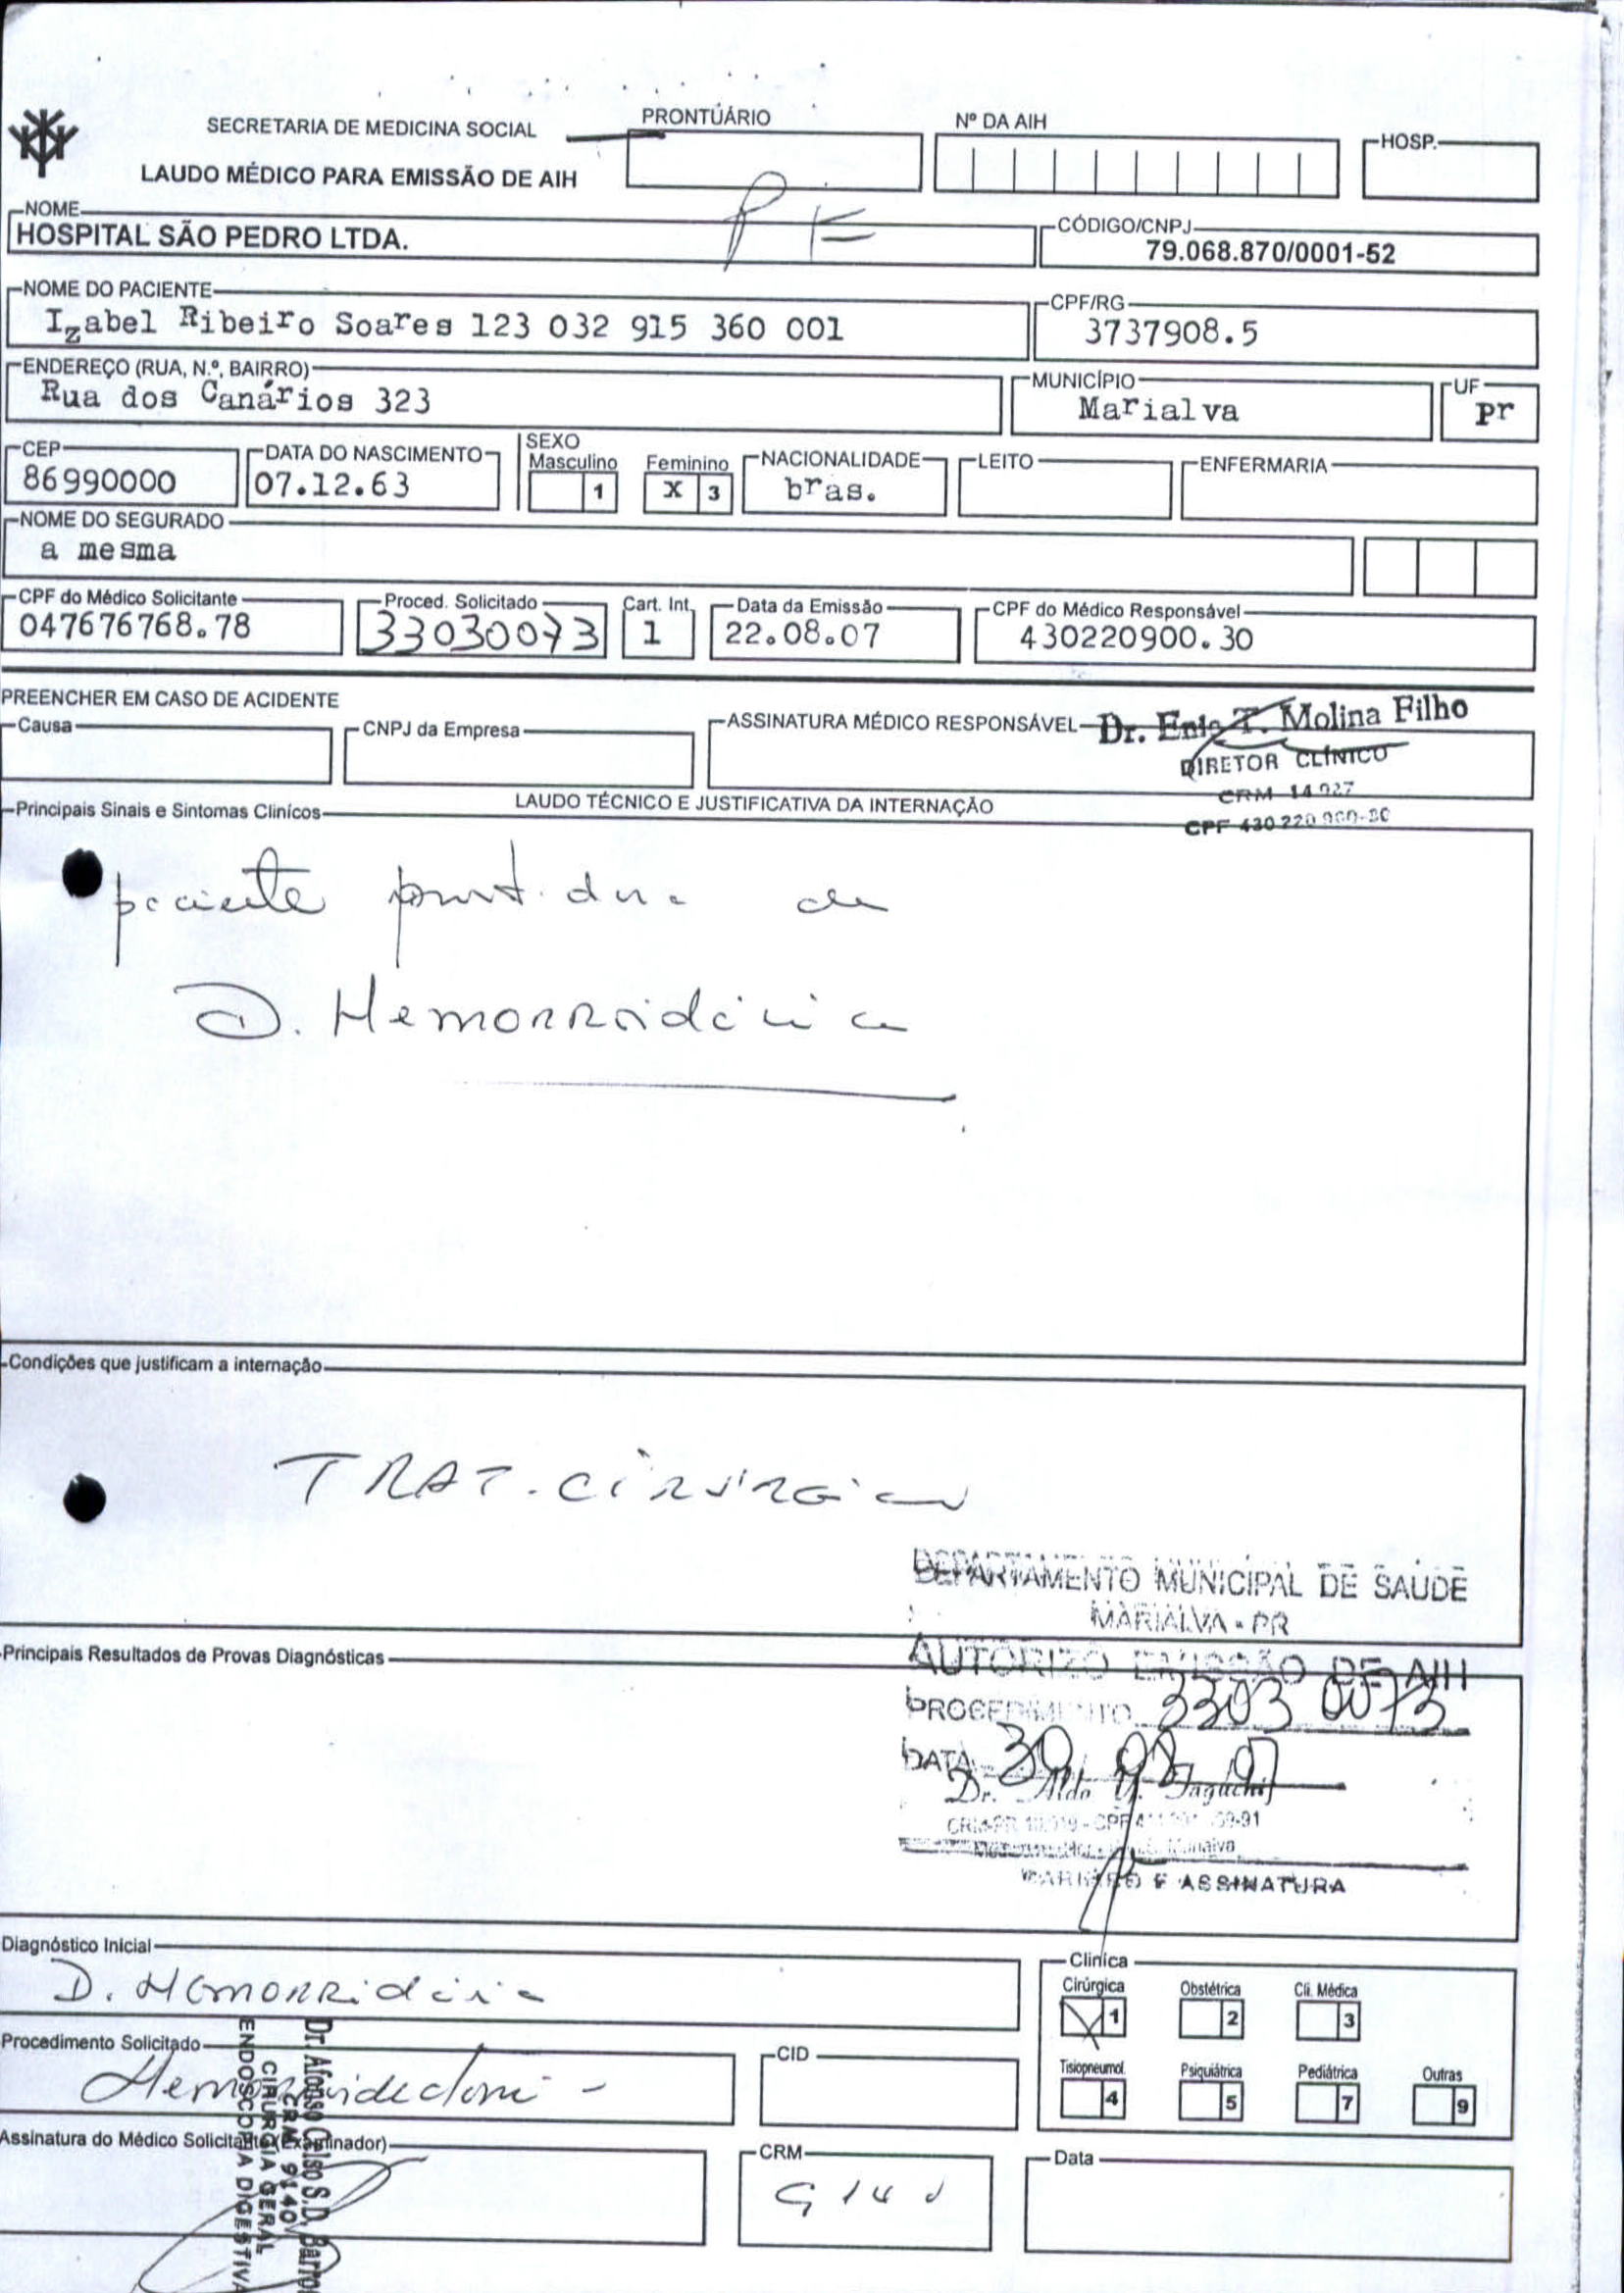 SECRETARIA DE MEDICINA SOCIAL
LAUDO MÉDICO PARA EMISSÃO DE AIH
PRONTÚÁRIO
Nº DA AIH
HOSP.
NOME
HOSPITAL SÃO PEDRO LTDA.
CÓDIGO/CNPJ
79.068.870/0001-52
NOME DO PACIENTE
Izabel Ribeiro Soares 123 032 915 360 001
CPF/RG
3737908.5
ENDEREÇO (RUA, N.º, BAIRRO)
Rua dos Canários 323
MUNICÍPIO
Marialva
UF
pr
CEP
86990000
DATA DO NASCIMENTO
07.12.63
SEXO
Masculino 1
Feminino X 3
NACIONALIDADE
bras.
LEITO
ENFERMARIA
NOME DO SEGURADO
a mesma
CPF do Médico Solicitante
047676768.78
Proced. Solicitado
33030073
Cart. Int.
1
Data da Emissão
22.08.07
CPF do Médico Responsável
430220900.30
PREENCHER EM CASO DE ACIDENTE
Causa
CNPJ da Empresa
ASSINATURA MÉDICO RESPONSÁVEL
Dr. Enio T. Molina Filho
DIRETOR CLÍNICO
CRM 14 927
CPF 430 220 900-30
LAUDO TÉCNICO E JUSTIFICATIVA DA INTERNAÇÃO
Principais Sinais e Sintomas Clinícos
paciente portadora de
D. Hemorroidária
Condições que justificam a internação
TRAT. CIRÚRGICO
DEPARTAMENTO MUNICIPAL DE SAÚDE
MARIALVA - PR
AUTORIZO EMISSÃO DE AIH
Principais Resultados de Provas Diagnósticas
PROCEDIMENTO 3303 0073
DATA 30 08 07
Dr. Aldo Y. Taguchi
CARIMBO E ASSINATURA
Diagnóstico Inicial
D. Hemorridária
Cliníca
Cirúrgica 1
Obstétrica 2
Cli. Médica 3
Tisiopneumol. 4
Psiquiátrica 5
Pediátrica 7
Outras 9
Procedimento Solicitado
Hemorroidectomia -
CID
Assinatura do Médico Solicitante (Examinador)
Dr. Afonso Celso S.D. Barros
CRM 9140
CIRURGIA GERAL
ENDOSCOPIA DIGESTIVA
CRM
9140
Data